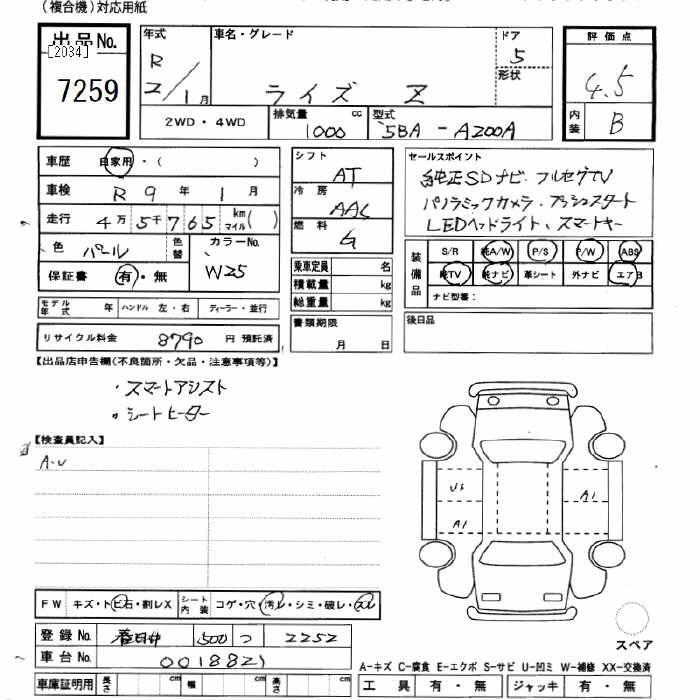 (複合機)対応用紙
出品No.
[2034]
7259
年式
R
2/1月
車名・グレード
ライズ Z
ドア
5
形状
評価点
4.5
内装
B
2WD・4WD
排気量 cc
1000
型式
5BA - A200A
車歴 自家用・( )
車検 R 9年 1月
走行 4万5千765 km マイル( )
色 パール 色替
カラーNo.
W25
保証書 有・無
モデル年式 年 ハンドル 左・右 ディーラー・並行
リサイクル料金 8790円 預託済
シフト
AT
冷房
AAC
燃料
G
乗車定員 名
積載量 kg
総重量 kg
書類期限
月 日
セールスポイント
純正SDナビ フルセグTV
パノラミックカメラ プッシュスタート
LEDヘッドライト、スマートキー
装備品
S/R 純A/W P/S P/W ABS
純TV 純ナビ 革シート 外ナビ エアB
ナビ型番:
後日品
【出品店申告欄(不良箇所・欠品・注意事項等)】
・スマートアシスト
・シートヒーター
【検査員記入】
A・U
US
A1
A1
FW キズ・トビ石・割レX シート内装 コゲ・穴・汚レ・シミ・破レ・スレ
登録No. 春日井 500 つ 2252
車台No. 0018821
車庫証明用 長さ cm 幅 cm 高さ cm
スペア
A-キズ C-腐食 E-エクボ S-サビ U-凹ミ W-補修 XX-交換済
工具 有・無 ジャッキ 有・無